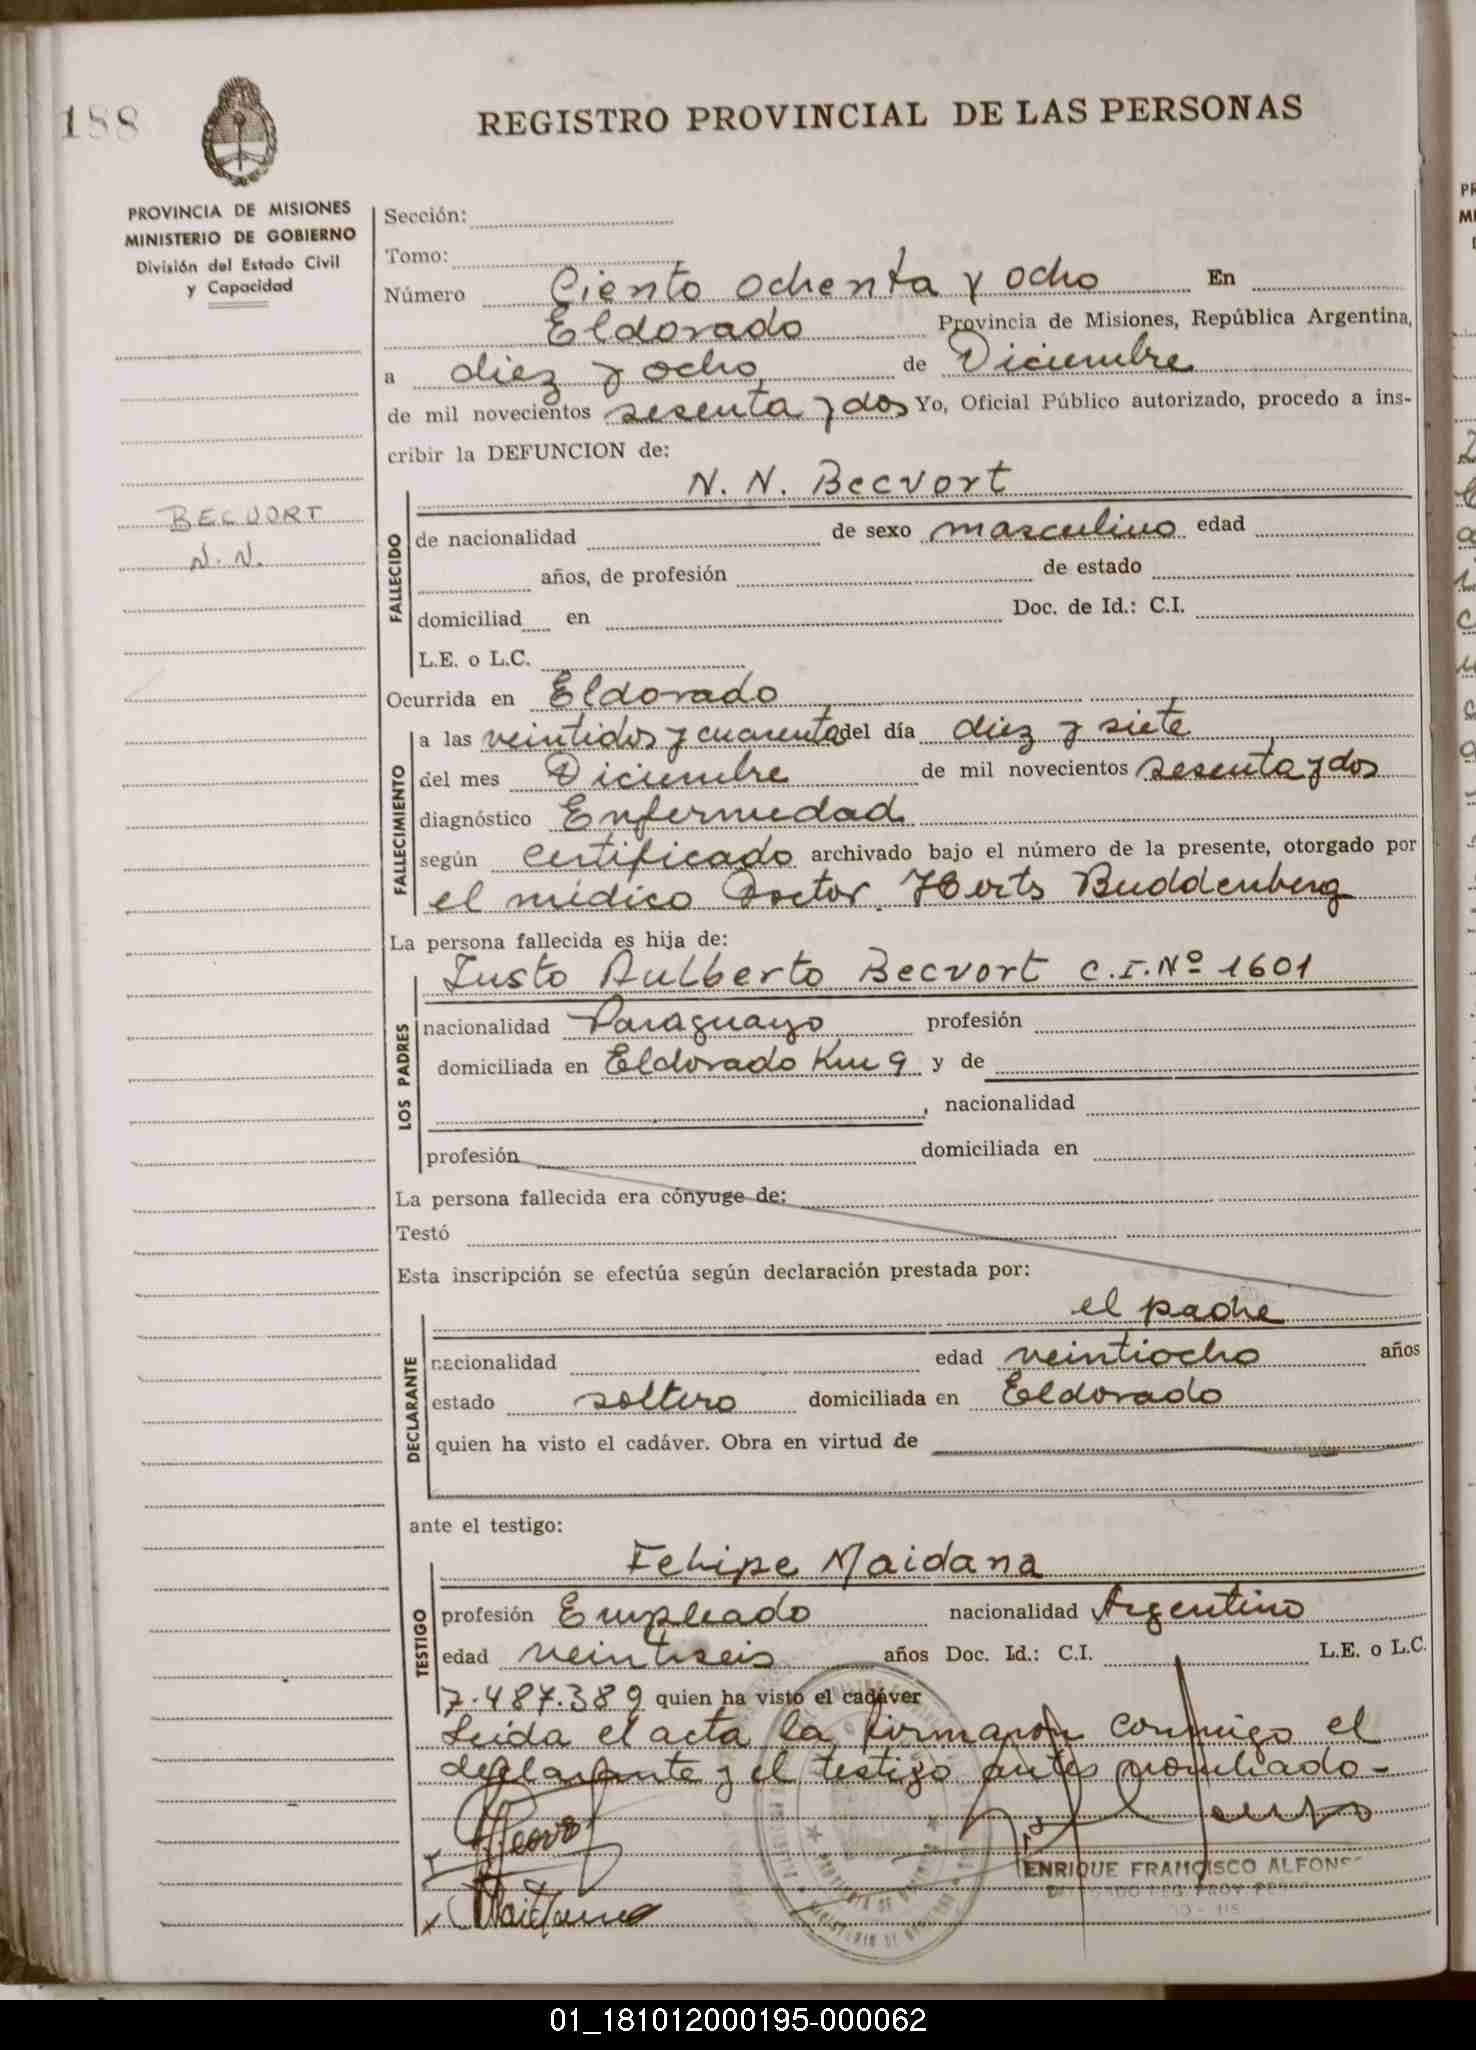 188
REGISTRO PROVINCIAL DE LAS PERSONAS
PROVINCIA DE MISIONES
MINISTERIO DE GOBIERNO
División del Estado Civil
y Capacidad
BECVORT
N. N.
Sección:
Tomo:
Número Ciento ochenta y ocho En
Eldorado Provincia de Misiones, República Argentina,
a diez y ocho de Diciembre
de mil novecientos sesenta y dos Yo, Oficial Público autorizado, procedo a ins-
cribir la DEFUNCION de:
N. N. Becvort
FALLECIDO
de nacionalidad de sexo masculino edad
años, de profesión de estado
domiciliad en Doc. de Id.: C.I.
L.E. o L.C.
Ocurrida en Eldorado
FALLECIMIENTO
a las veintidos y cuarenta del día diez y siete
del mes Diciembre de mil novecientos sesenta y dos
diagnóstico Enfermedad
según certificado archivado bajo el número de la presente, otorgado por
el médico Doctor Buddenberg
La persona fallecida es hija de:
LOS PADRES
Justo Aulberto Becvort C.I. Nº 1601
nacionalidad Paraguayo profesión
domiciliada en Eldorado Km 9 y de
, nacionalidad
profesión domiciliada en
La persona fallecida era cónyuge de:
Testó
Esta inscripción se efectúa según declaración prestada por:
el padre
DECLARANTE
nacionalidad edad veintiocho años
estado soltero domiciliada en Eldorado
quien ha visto el cadáver. Obra en virtud de
ante el testigo:
Felipe Maidana
TESTIGO
profesión Empleado nacionalidad Argentino
edad veintiseis años Doc. Id.: C.I. L.E. o L.C.
7.487.389 quien ha visto el cadáver
Leida el acta la firmaron conmigo el
declarante y el testigo antes nombrado -
ENRIQUE FRANCISCO ALFONS
01_181012000195-000062